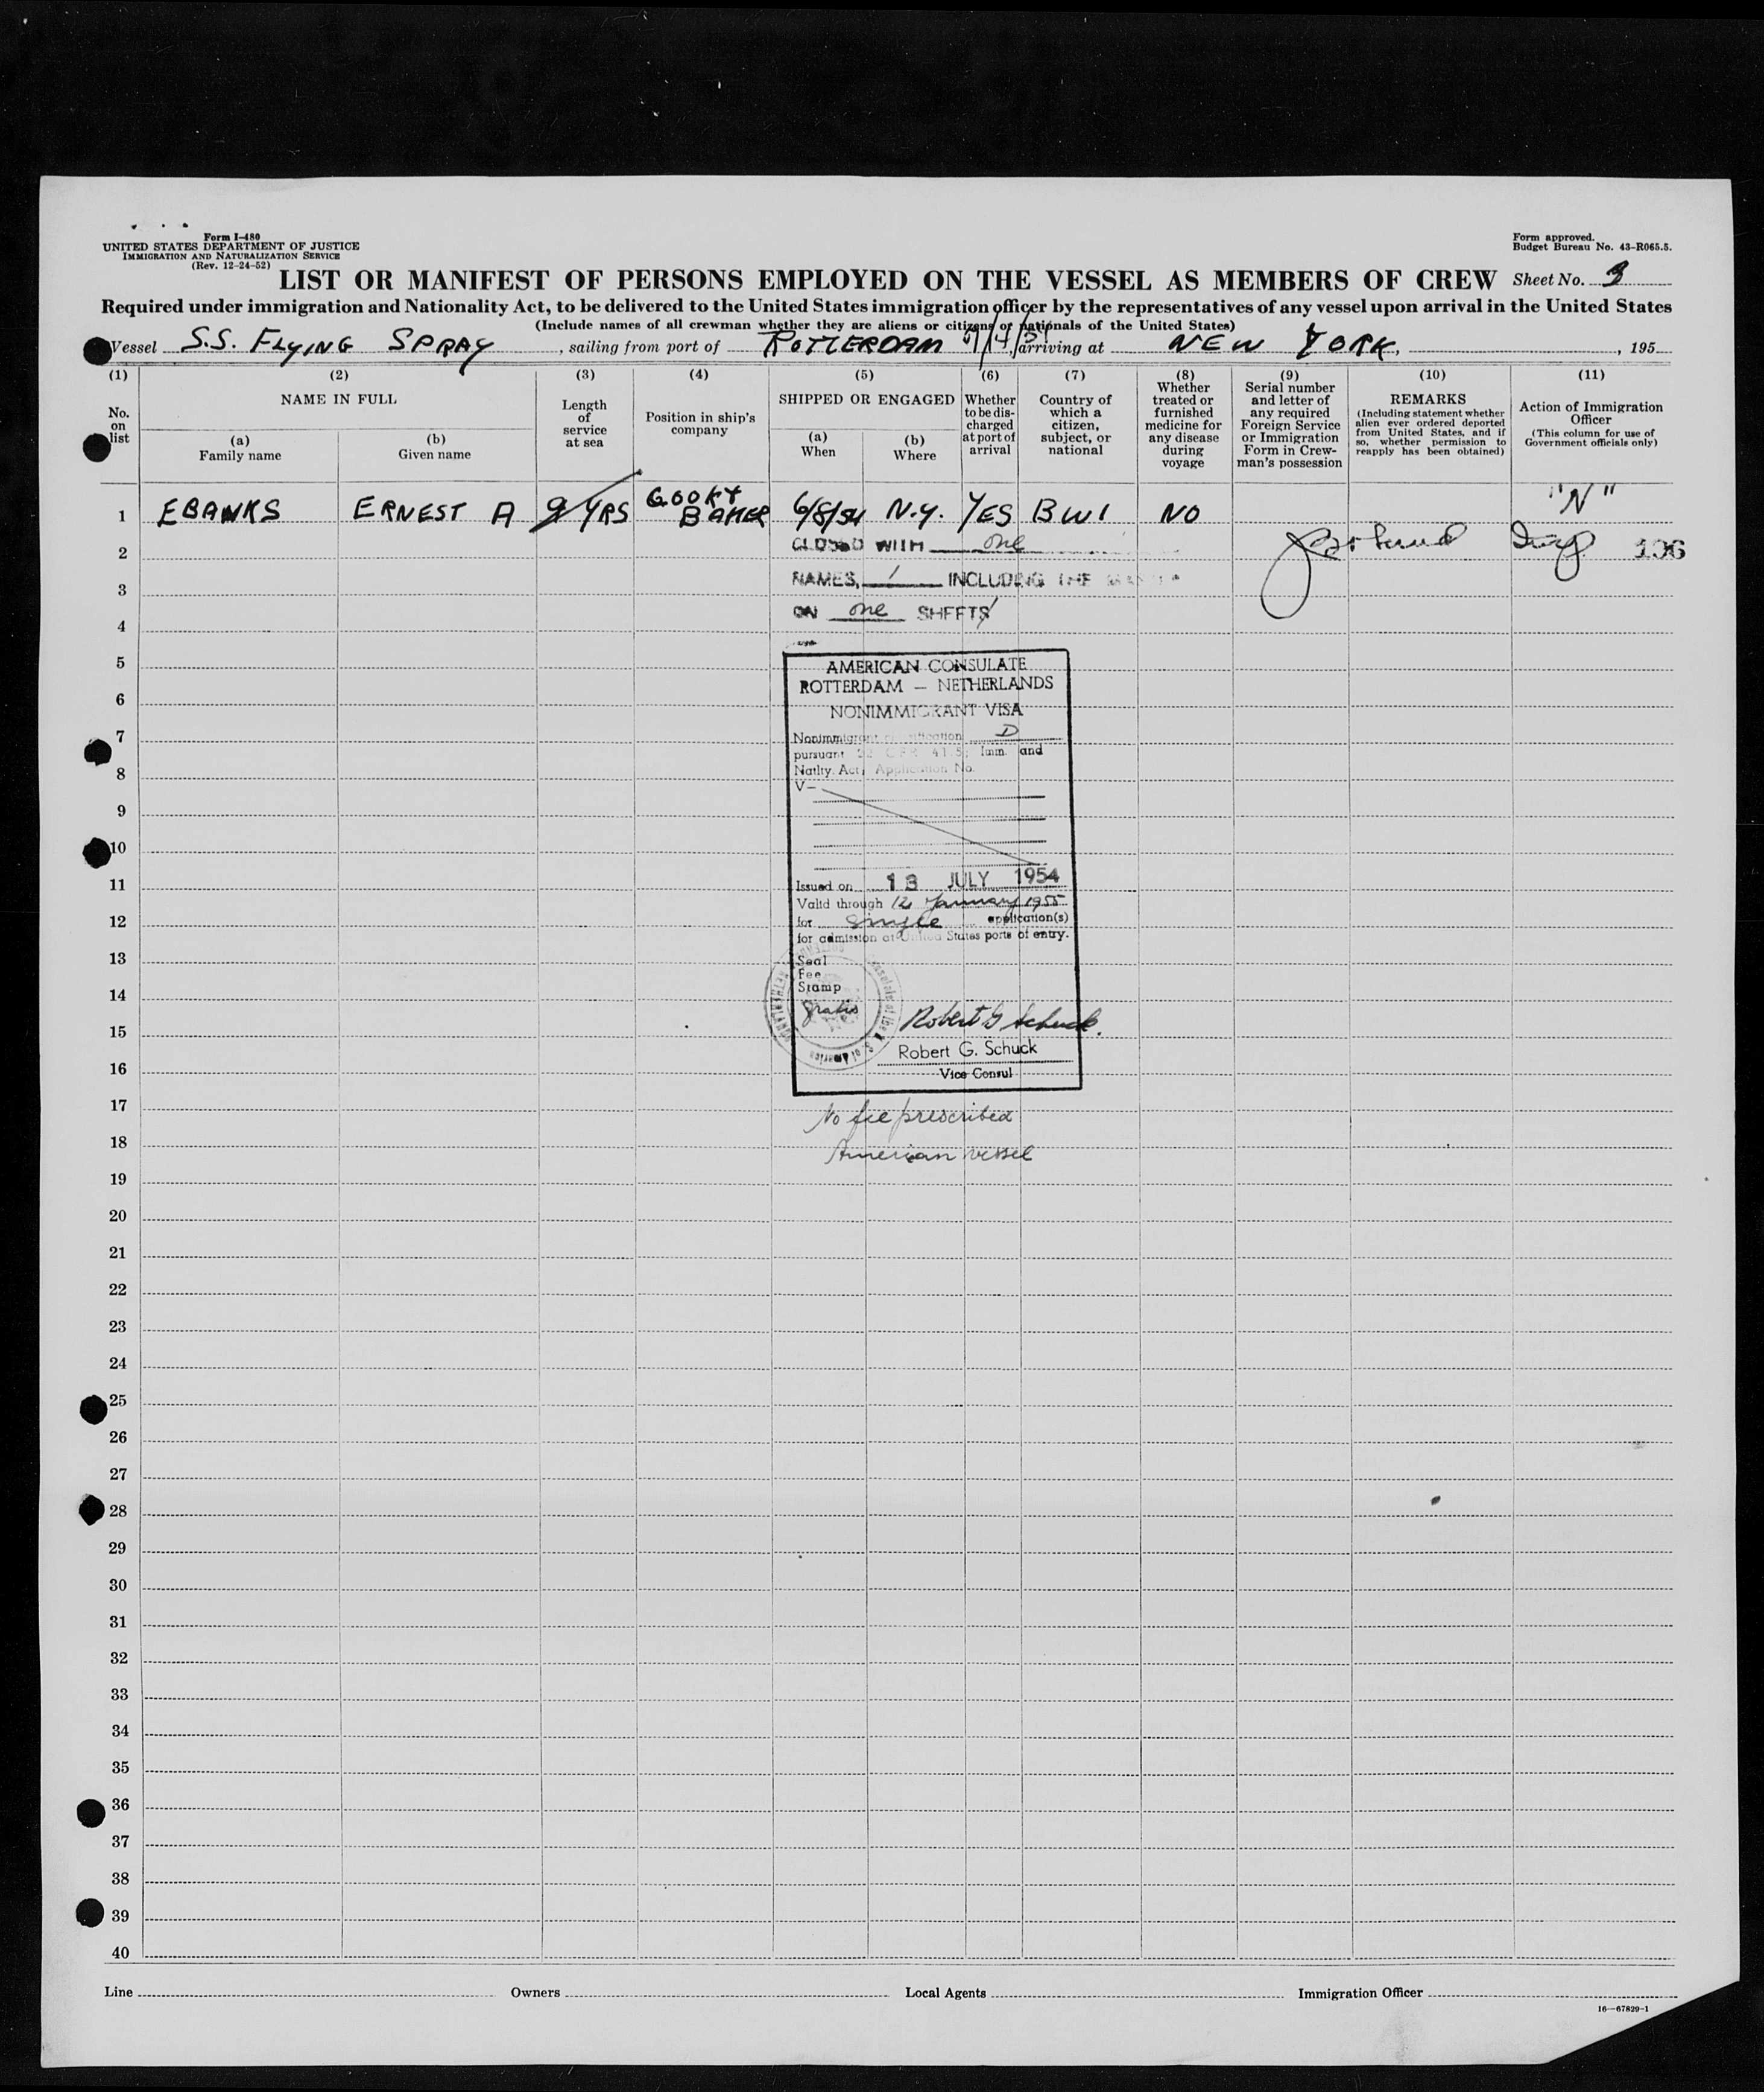 Form I-480
UNITED STATES DEPARTMENT OF JUSTICE
IMMIGRATION AND NATURALIZATION SERVICE
(Rev. 12-24-52)
Form approved.
Budget Bureau No. 43-R065.5.
LIST OR MANIFEST OF PERSONS EMPLOYED ON THE VESSEL AS MEMBERS OF CREW
Sheet No. 3
Required under immigration and Nationality Act, to be delivered to the United States immigration officer by the representatives of any vessel upon arrival in the United States
(Include names of all crewman whether they are aliens or citizens or nationals of the United States)
Vessel S.S. FLYING SPRAY, sailing from port of ROTTERDAM 7/14/54, arriving at NEW YORK, , 195
(1) No. on list
(2) NAME IN FULL
(a) Family name
(b) Given name
(3) Length of service at sea
(4) Position in ship's company
(5) SHIPPED OR ENGAGED
(a) When
(b) Where
(6) Whether to be discharged at port of arrival
(7) Country of which a citizen, subject, or national
(8) Whether treated or furnished medicine for any disease during voyage
(9) Serial number and letter of any required Foreign Service or Immigration Form in Crewman's possession
(10) REMARKS (Including statement whether alien ever ordered deported from United States, and if so, whether permission to reapply has been obtained)
(11) Action of Immigration Officer (This column for use of Government officials only)
1 EBANKS ERNEST A 9 YRS COOK & BAKER 6/8/54 N.Y. YES BWI NO "N"
2 CLOSED WITH one 136
3 NAMES, 1 INCLUDING THE
4 ON one SHEETS
5 AMERICAN CONSULATE
ROTTERDAM — NETHERLANDS
6
NONIMMIGRANT VISA
7 Nonimmigrant classification D
pursuant 22 CFR 41.5; Imm. and
8 Natlty. Act; Application No.
V—
9
10
11 Issued on 13 JULY 1954
Valid through 12 January 1955
12 for single application(s)
for admission at United States ports of entry.
13 Seal
Fee
14 Stamp
gratis
Robert G Schuck.
15
Robert G. Schuck
16 Vice Consul
17 No fee prescribed
18 American vessel
19
20
21
22
23
24
25
26
27
28
29
30
31
32
33
34
35
36
37
38
39
40
Line Owners Local Agents Immigration Officer
16—67829-1